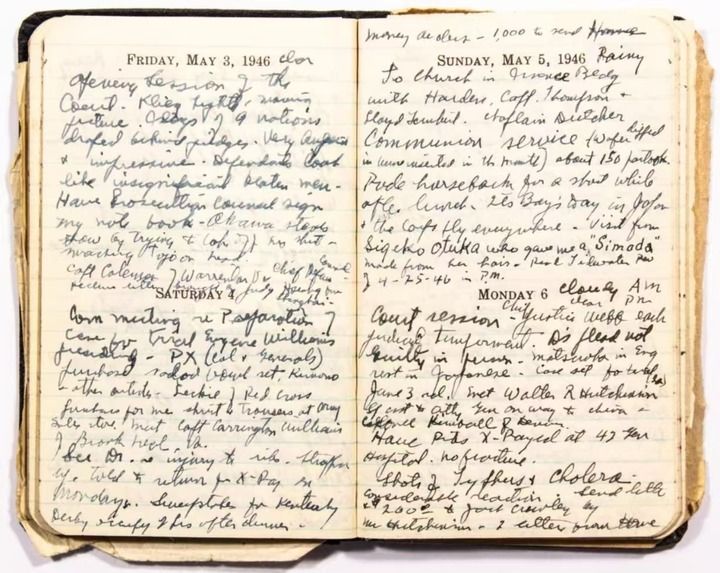 FRIDAY, MAY 3, 1946 clear
Opening Session of the
Court. Klieg lights, moving
picture. Flags of 9 nations
draped behind judges. Very
& impressive. Defendants look
like insignificant beaten men -
Have Prosecution Counsel sign
my note book - Okawa steals
show by trying to take off his shirt -
smacking Tojo on head.
Capt Coleman of Warrenton Va Chief Defense Counsel
SATURDAY 4
Com meeting re Preparation of
Case for trial Eugene Williams
presiding - PX (Col & Generals)
purchase salad bowl set, Kimono
& other articles. of Red Cross
purchase for me shirt & trousers at Army
Sales store. Met Capt Carrington Williams
of Brook Va.
See Dr. re injury to rib. Straps
up. Told to return for X-Ray on
Monday. Sweepstake for Kentucky
Derby after dinner.
money orders - 1,000 to send Home
SUNDAY, MAY 5, 1946 Rainy
To Church in Finance Bldg
with Hardin, Capt. Thompson &
Lloyd. Chaplain
Communion service (wafer dipped
in wine inserted in the mouth) about 150 partook.
Rode horseback for a short while
after lunch. It's Boy's Day in Japan
& the carp fly everywhere - Visit from
Sigeko Otuka who gave me a "Simoda"
made from her hair - Read Tidewater Rev
of 4-25-46 in P.M.
MONDAY 6 cloudy AM
clear PM
Court session Chief Justice Webb each
temperment. D's plead not
guilty in person - Matsuoka in Eng
rest in Japanese. Case set for trial
June 3rd. Met Walter R Hutchinson
Asst Atty Gen on way to China -
Colonel Kimball of
Have Ribs X-Rayed at 42 Gen
Hospital. No fracture.
Shots of Typhus & Cholera.
considerable reaction - Send letter
& $200 to Jack Crowley by
Mr Hutchinson - 2 letters from